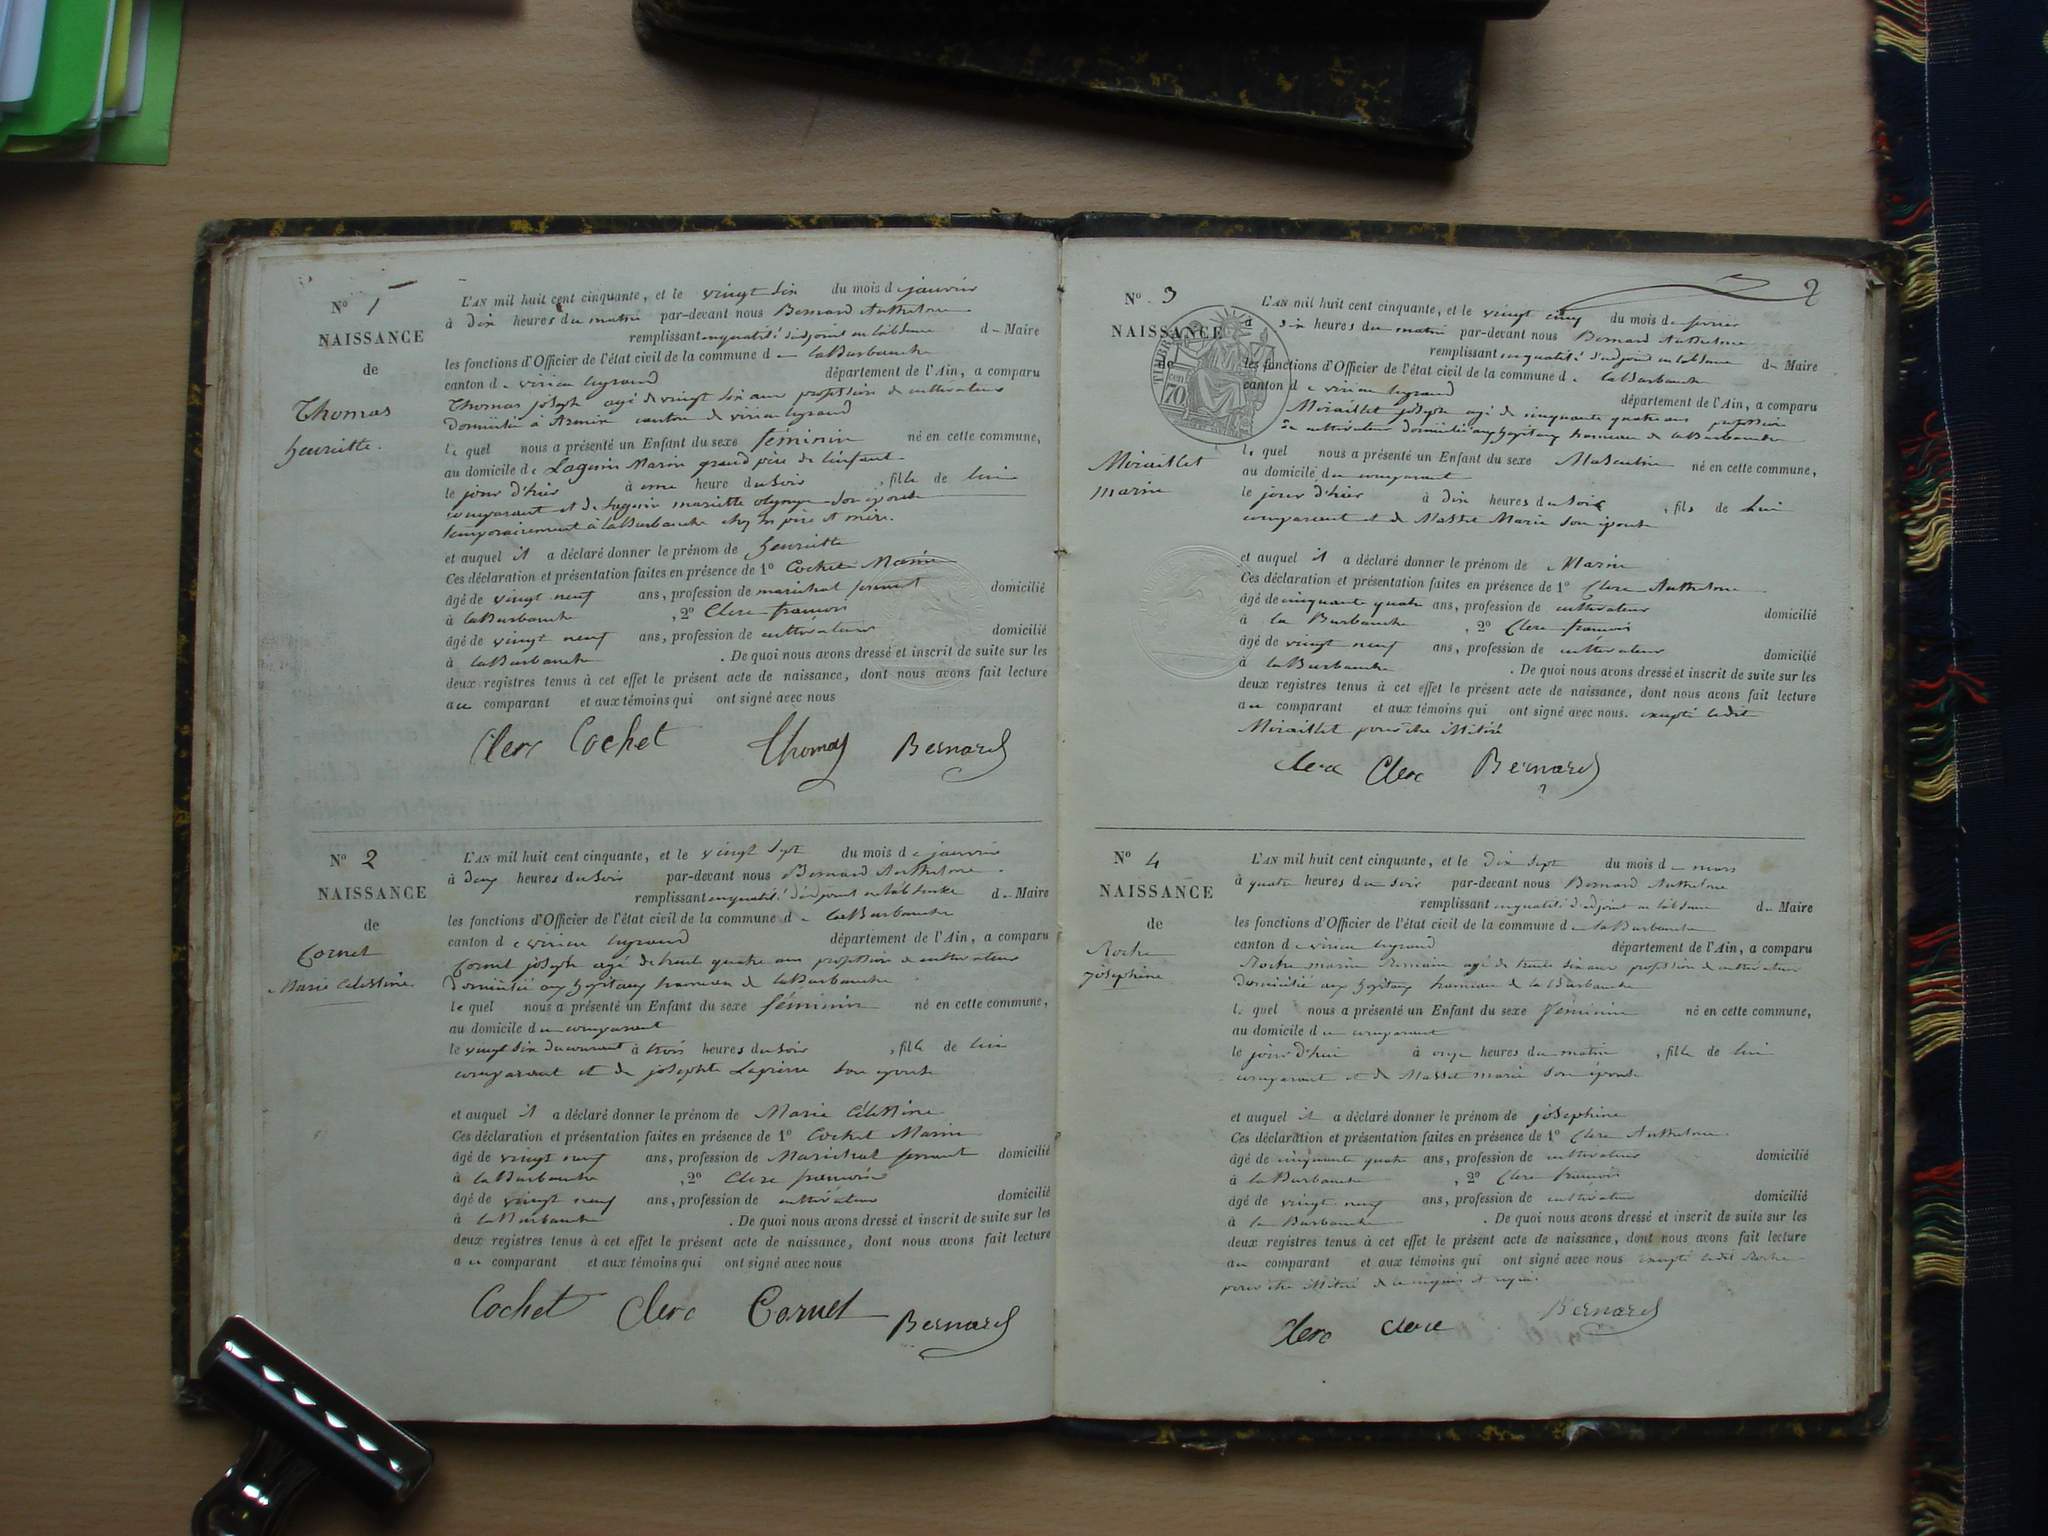 N° 1
NAISSANCE
de
Thomas
henriette.
L'AN mil huit cent cinquante, et le vingt six du mois de janvier
à dix heures du matin par-devant nous Bernard Anthelme
remplissant en qualité d'adjoint en l'absence du Maire
les fonctions d'Officier de l'état civil de la commune de la Burbanche
canton de virieu legrand département de l'Ain, a comparu
Thomas joseph agé de vingt six ans profession de cultivateur
domicilié à Armix canton de virieu legrand
le quel nous a présenté un Enfant du sexe féminin né en cette commune,
au domicile de Laguin Marin grand père de l'enfant
le jour d'hier à une heure du soir , fille de lui
comparant et de Laguin mariette olympe son épouse
temporairement à la Burbanche chez ses père et mère.
et auquel il a déclaré donner le prénom de henriette
Ces déclaration et présentation faites en présence de 1° Cochet Marin
âgé de vingt neuf ans, profession de maréchal ferrant domicilié
à la Burbanche , 2° Clerc francois
âgé de vingt neuf ans, profession de cultivateur domicilié
à la Burbanche . De quoi nous avons dressé et inscrit de suite sur les
deux registres tenus à cet effet le présent acte de naissance, dont nous avons fait lecture
au comparant et aux témoins qui ont signé avec nous
Clerc Cochet Thomas Bernard
N° 2
NAISSANCE
de
Cornet
Marie Célestine.
L'AN mil huit cent cinquante, et le vingt sept du mois de janvier
à deux heures du soir par-devant nous Bernard Anthelme
remplissant en qualité d'adjoint en l'absence du Maire
les fonctions d'Officier de l'état civil de la commune de la Burbanche
canton de virieu legrand département de l'Ain, a comparu
Cornet joseph agé de trente quatre ans profession de cultivateur
domicilié aux hopitaux hameau de la Burbanche
le quel nous a présenté un Enfant du sexe féminin né en cette commune,
au domicile du comparant
le vingt six du courant à trois heures du soir , fille de lui
comparant et de josephte son épouse
et auquel il a déclaré donner le prénom de Marie Célestine
Ces déclaration et présentation faites en présence de 1° Cochet Marin
âgé de vingt neuf ans, profession de Maréchal ferrant domicilié
à la Burbanche , 2° Clerc francois
âgé de vingt neuf ans, profession de cultivateur domicilié
à la Burbanche . De quoi nous avons dressé et inscrit de suite sur les
deux registres tenus à cet effet le présent acte de naissance, dont nous avons fait lecture
au comparant et aux témoins qui ont signé avec nous
Cochet Clerc Cornet Bernard
2
N° 3
NAISSANCE
de
Miraillet
marin
TIMBRE
70 cen
L'AN mil huit cent cinquante, et le vingt cinq du mois de fevrier
à dix heures du matin par-devant nous Bernard Anthelme
remplissant en qualité d'adjoint en l'absence du Maire
les fonctions d'Officier de l'état civil de la commune de la Burbanche
canton de virieu legrand département de l'Ain, a comparu
Miraillet joseph agé de cinquante quatre ans profession
de cultivateur domicilié aux hopitaux hameau de la Burbanche
le quel nous a présenté un Enfant du sexe Masculin né en cette commune,
au domicile du comparant
le jour d'hier à dix heures du soir , fils de lui
comparant et de Marie son épouse
et auquel il a déclaré donner le prénom de Marin
Ces déclaration et présentation faites en présence de 1° Clerc Anthelme
âgé de cinquante quatre ans, profession de cultivateur domicilié
à la Burbanche , 2° Clerc francois
âgé de vingt neuf ans, profession de cultivateur domicilié
à la Burbanche . De quoi nous avons dressé et inscrit de suite sur les
deux registres tenus à cet effet le présent acte de naissance, dont nous avons fait lecture
au comparant et aux témoins qui ont signé avec nous. excepté ledit
Miraillet pour être illitéré
Clerc Clerc Bernard
N° 4
NAISSANCE
de
Roche
josephine
L'AN mil huit cent cinquante, et le dix sept du mois de mars
à quatre heures du soir par-devant nous Bernard Anthelme
remplissant en qualité d'adjoint en l'absence du Maire
les fonctions d'Officier de l'état civil de la commune de la Burbanche
canton de virieu legrand département de l'Ain, a comparu
Roche marin agé de trente six ans profession de cultivateur
domicilié aux hopitaux hameau de la Burbanche
le quel nous a présenté un Enfant du sexe féminin né en cette commune,
au domicile du comparant
le jour d'hui à onze heures du matin , fille de lui
comparant et de Masset marie son épouse
et auquel il a déclaré donner le prénom de josephine
Ces déclaration et présentation faites en présence de 1° Clerc Anthelme
âgé de cinquante quatre ans, profession de cultivateur domicilié
à la Burbanche , 2° Clerc francois
âgé de vingt neuf ans, profession de cultivateur domicilié
à la Burbanche . De quoi nous avons dressé et inscrit de suite sur les
deux registres tenus à cet effet le présent acte de naissance, dont nous avons fait lecture
au comparant et aux témoins qui ont signé avec nous excepté ledit Roche
pour être illitéré de ce requis
Clerc Clerc Bernard